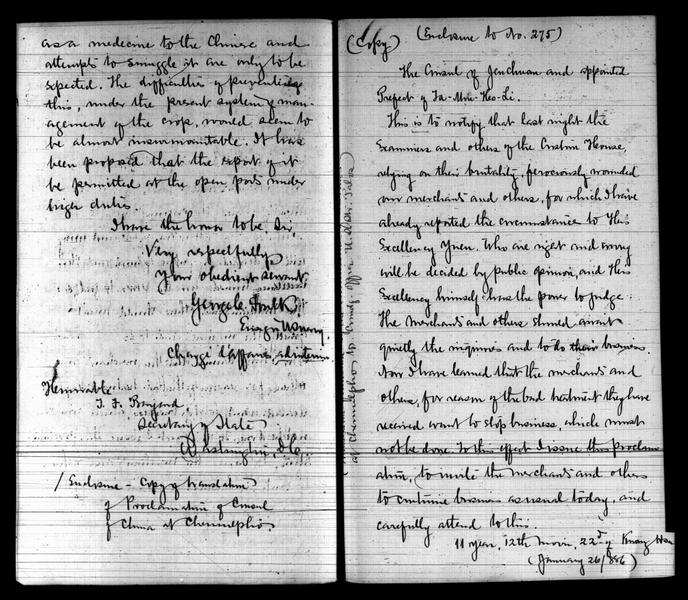 as a medicine to the Chinese and
attempts to smuggle it are only to be
expected. The difficulties of preventing
this, under the present system of man-
agement of the crop, would seem to
be almost insurmountable. It has
been proposed that the export of it
be permitted at the open ports under
higher duties.
I have the honor to be, Sir,
Very respectfully
Your obedient servant
George C. Foulk
Ensign U.S. Navy
Chargé d'affaires ad interim
Honorable
T. F. Bayard
Secretary of State
Washington D.C.
1 Enclosure - Copy of translation
of Proclamation of Consul
of China at Chemulpho.
(Copy) (Enclosure to No. 275)
The Consul of Jenchuan and appointed
Prefect of
This is to notify that last night the
Examiners and others of the Custom House,
relying on their brutality, ferociously wounded
our merchants and others, for which I have
already reported the circumstance to His
Excellency Yuen. Who are right and wrong
will be decided by public opinion, and His
Excellency himself has the power to judge.
The Merchants and others should await
quietly the inquiries and to do their business.
Now I have learned that the merchants and
others, for reason of the bad treatment they have
received want to stop business, which must
not be done. To this effect I issue this proclam
ation, to invite the merchants and others
to continue business as usual today, and
carefully attend to this.
11 year, 12th moon, 22d of Kwang
(January 26/886)
at Chemulpho to